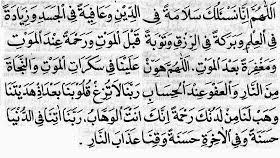 اَللّٰهُمَّ اِنَّا نَسْئَلُكَ سَلَامَةً فِى الدِّيْنِ وَعَافِيَةً فِى الْجَسَدِ وَزِيَادَةً
فِى الْعِلْمِ وَبَرَكَةً فِى الرِّزْقِ وَتَوْبَةً قَبْلَ الْمَوْتِ وَرَحْمَةً عِنْدَ الْمَوْتِ
وَمَغْفِرَةً بَعْدَ الْمَوْتِ. اَللّٰهُمَّ هَوِّنْ عَلَيْنَا فِى سَكَرَاتِ الْمَوْتِ وَالنَّجَاةَ
مِنَ النَّارِ وَالْعَفْوَ عِنْدَ الْحِسَابِ رَبَّنَا لَا تُزِغْ قُلُوْبَنَا بَعْدَ اِذْ هَدَيْتَنَا
وَهَبْ لَنَا مِنْ لَدُنْكَ رَحْمَةً اِنَّكَ اَنْتَ الْوَهَّابُ. رَبَّنَا اٰتِنَا فِى الدُّنْيَا
حَسَنَةً وَفِى الْاٰخِرَةِ حَسَنَةً وَقِنَا عَذَابَ النَّارِ.